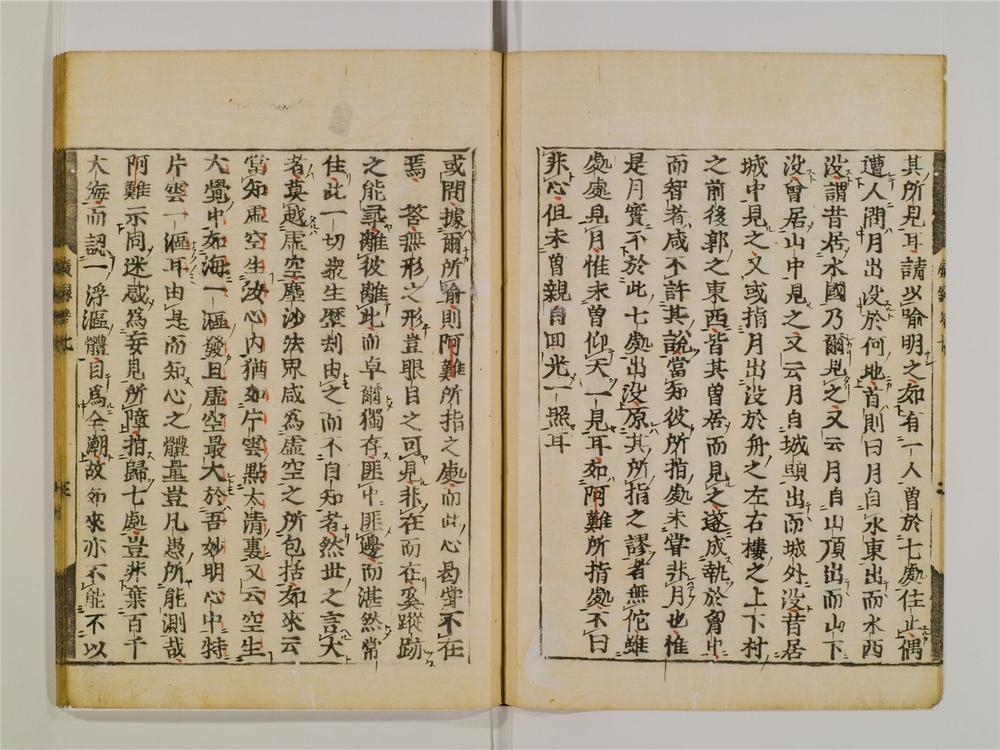 其所見耳請以喻明之如有一人曽於七處住止偶
遭人問月出没於何地首則曰月自水東出而水西
没謂昔居水國乃爾見之又云月自山頂出而山下
没曽居山中見之又云月自城頭出而城外没昔居
城中見之又或指月出没於舟之左右樓之上下村
之前後郭之東西皆其曽居而見之遂成執於胷中
而智者咸不許其說當知彼所指處未甞非月也惟
是月實不於此七處出没原其所指之謬者無佗雖
處處見月惟未曽仰天一見耳如阿難所指處不曰
非心但未曽親自回光一照耳
或問據爾所喻則阿難所指之處而此心曷甞不在
焉 荅無形之形豈眼目之可見非在而在奚蹤跡
之能尋離彼離此而卓爾獨存匪中匪邊而湛然常
住此一切衆生歷刼由之而不自知者然世之言大
者莫越虚空塵沙法界咸為虚空之所包括如來云
當知虚空生汝心內猶如片雲點太清裏又云空生
大覺中如海一漚發且虚空最大於吾妙明心中特
片雲一漚耳由是而知心之體量豈凡愚所能測哉
阿難示同迷惑為妄見所障指歸七處豈非棄百千
大海而認一浮漚體目為全潮故如來亦不能不以